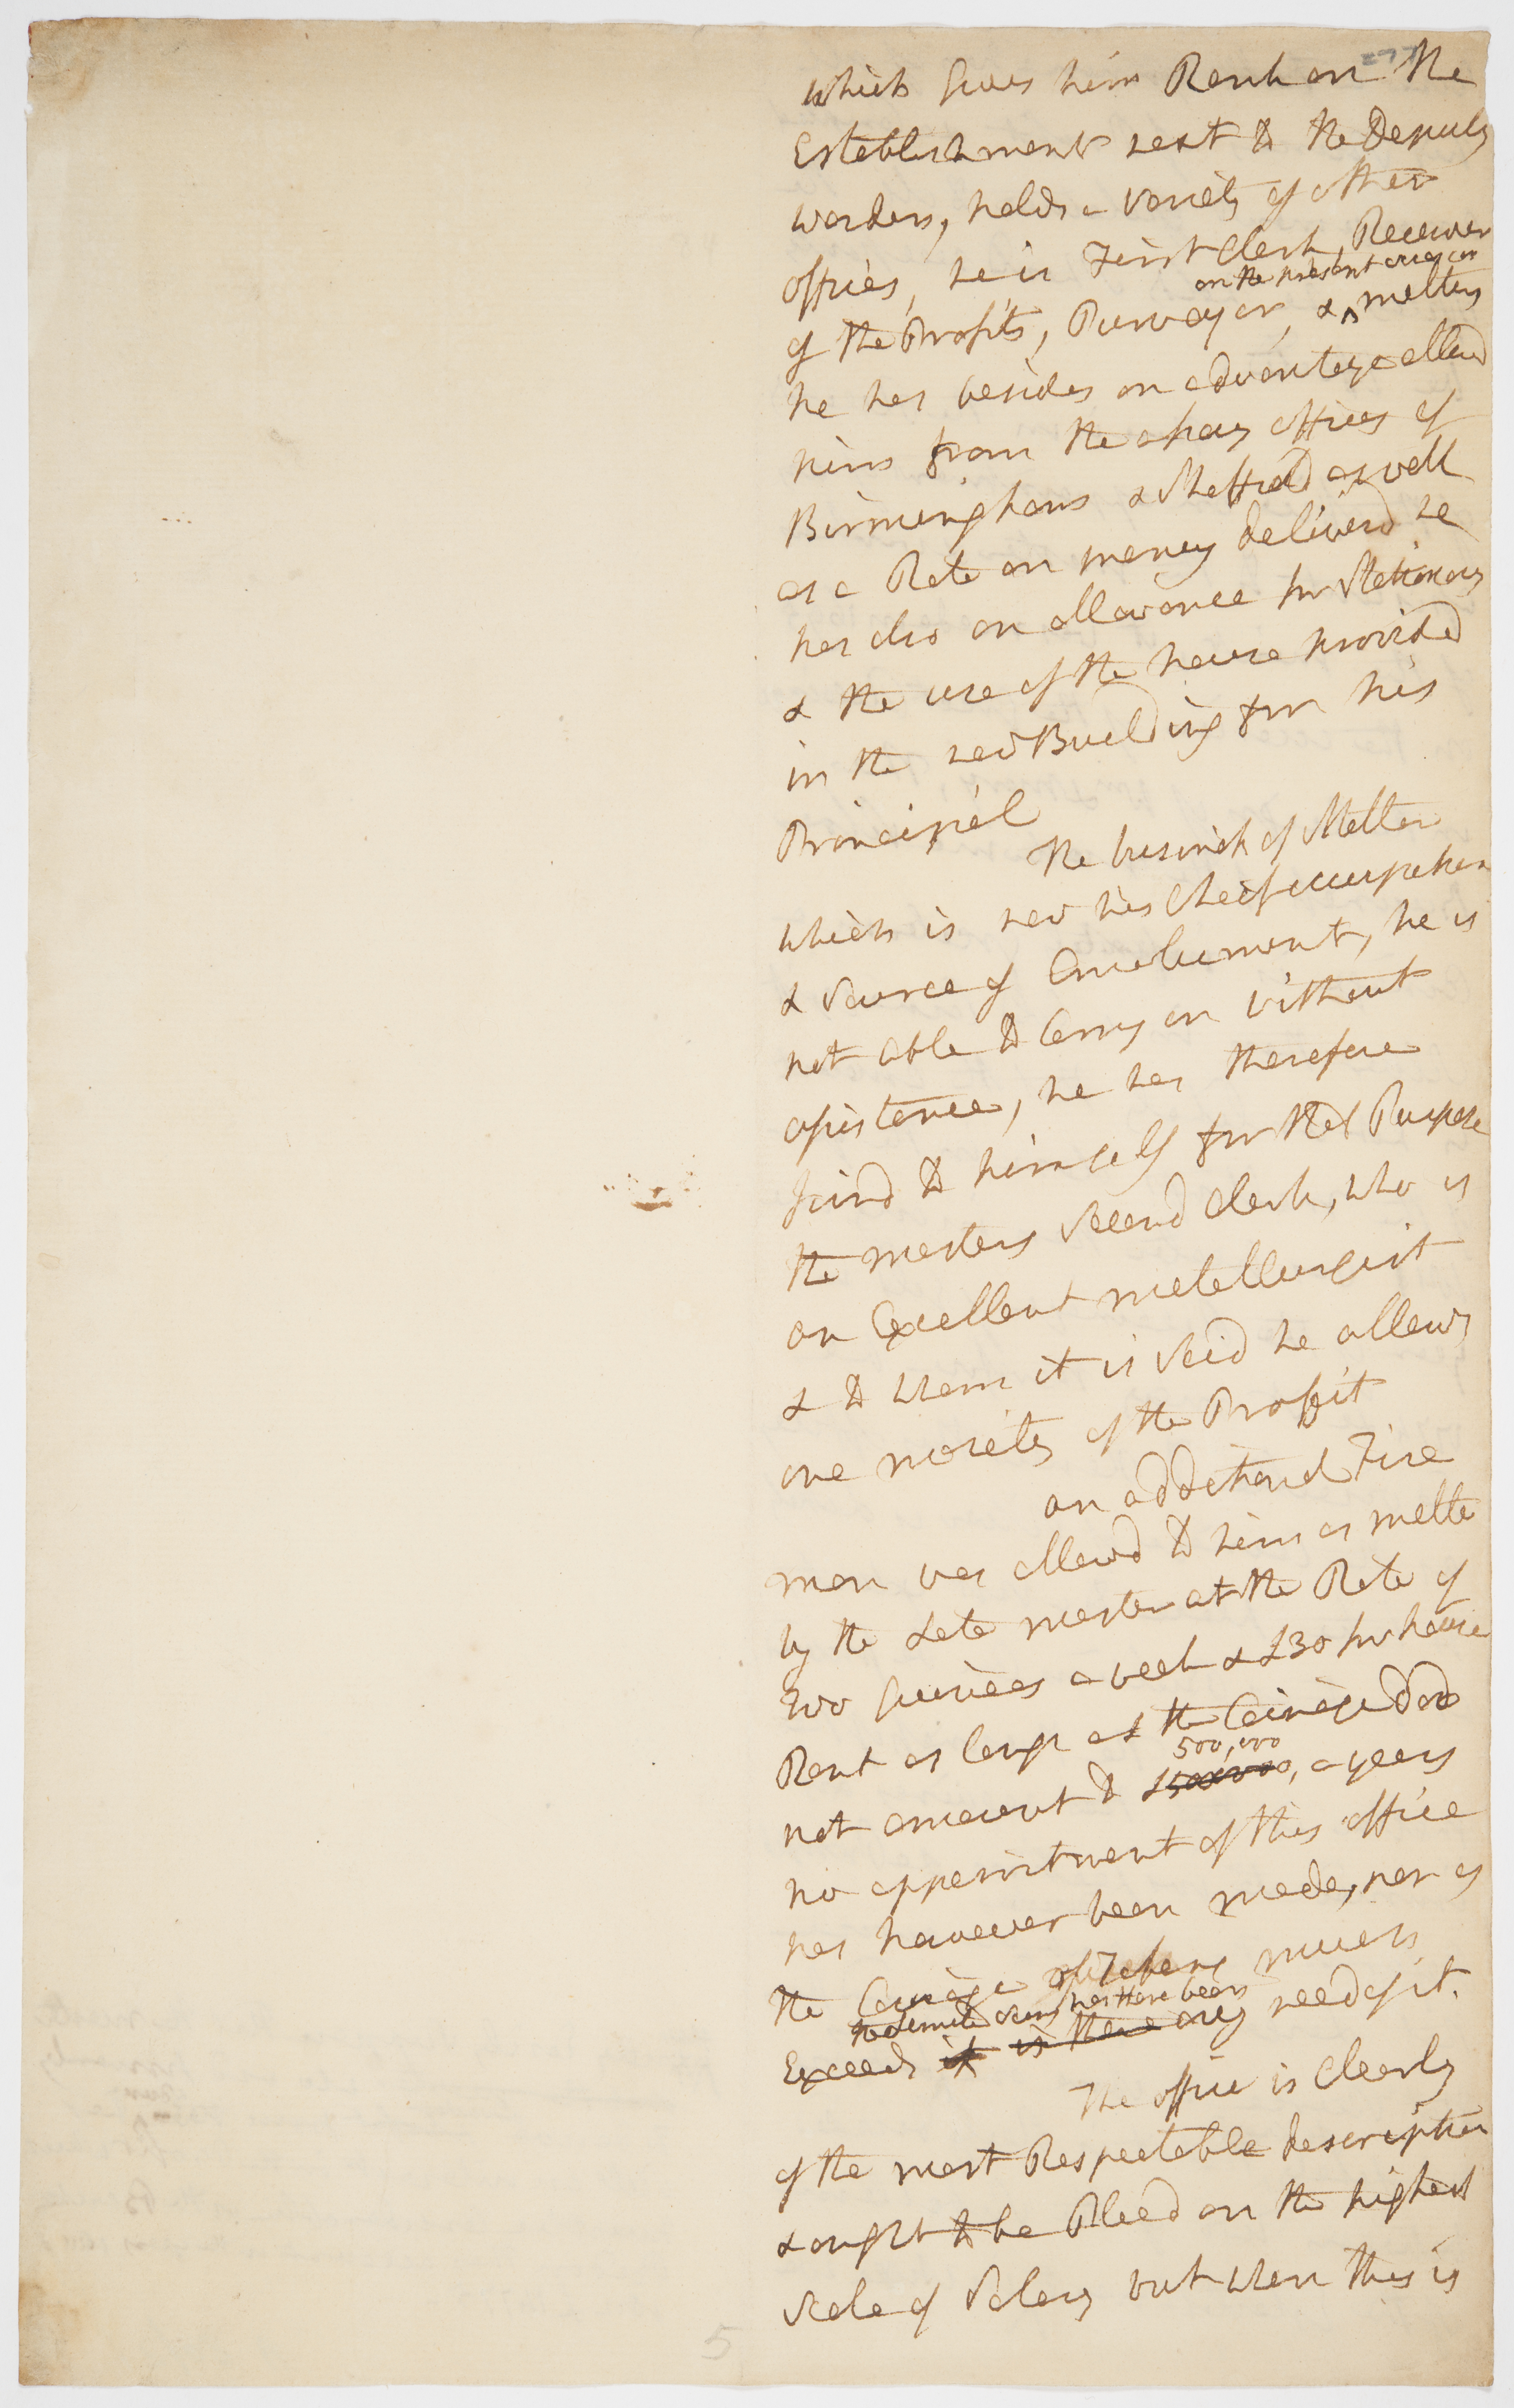 which gives him Rank on the
Establishment next to the Deputy
warden, holds a variety of other
offices, he is First Clerk, Receiver
on the present occasion
of the Profits, Purveyor, & melter
he has besides an advantage allowd
him from the assay offices of
Birmingham & Sheffield as well
as a Rate on money deliverd he
has also an allowance for Stationary
& the use of the house provided
in the new Building for his
Principal
The business of Melter
which is now his Cheif occupation
& source of Emolument, he is
not able to Carry on without
assistance, he has therefore
joind to himself for that Purpose
the masters second Clerk, who is
an Excellent metallurgist
& to whom it is said he allows
one moiety of the Proffit
an additional Fire
man was allowd to him as melter
by the Late master at the Rate of
two guineas a week & £30 for house
Rent as long as the Coinage did
500,000
not amount to £500,000, a year
no appointment of this office
has however been made, nor as
the Coinage much
has there been
Exceeds it is there any need of it.
The office is Clearly
of the most Respectable description
& ought to be Placd on the highest
scale of Salary but when this is
5